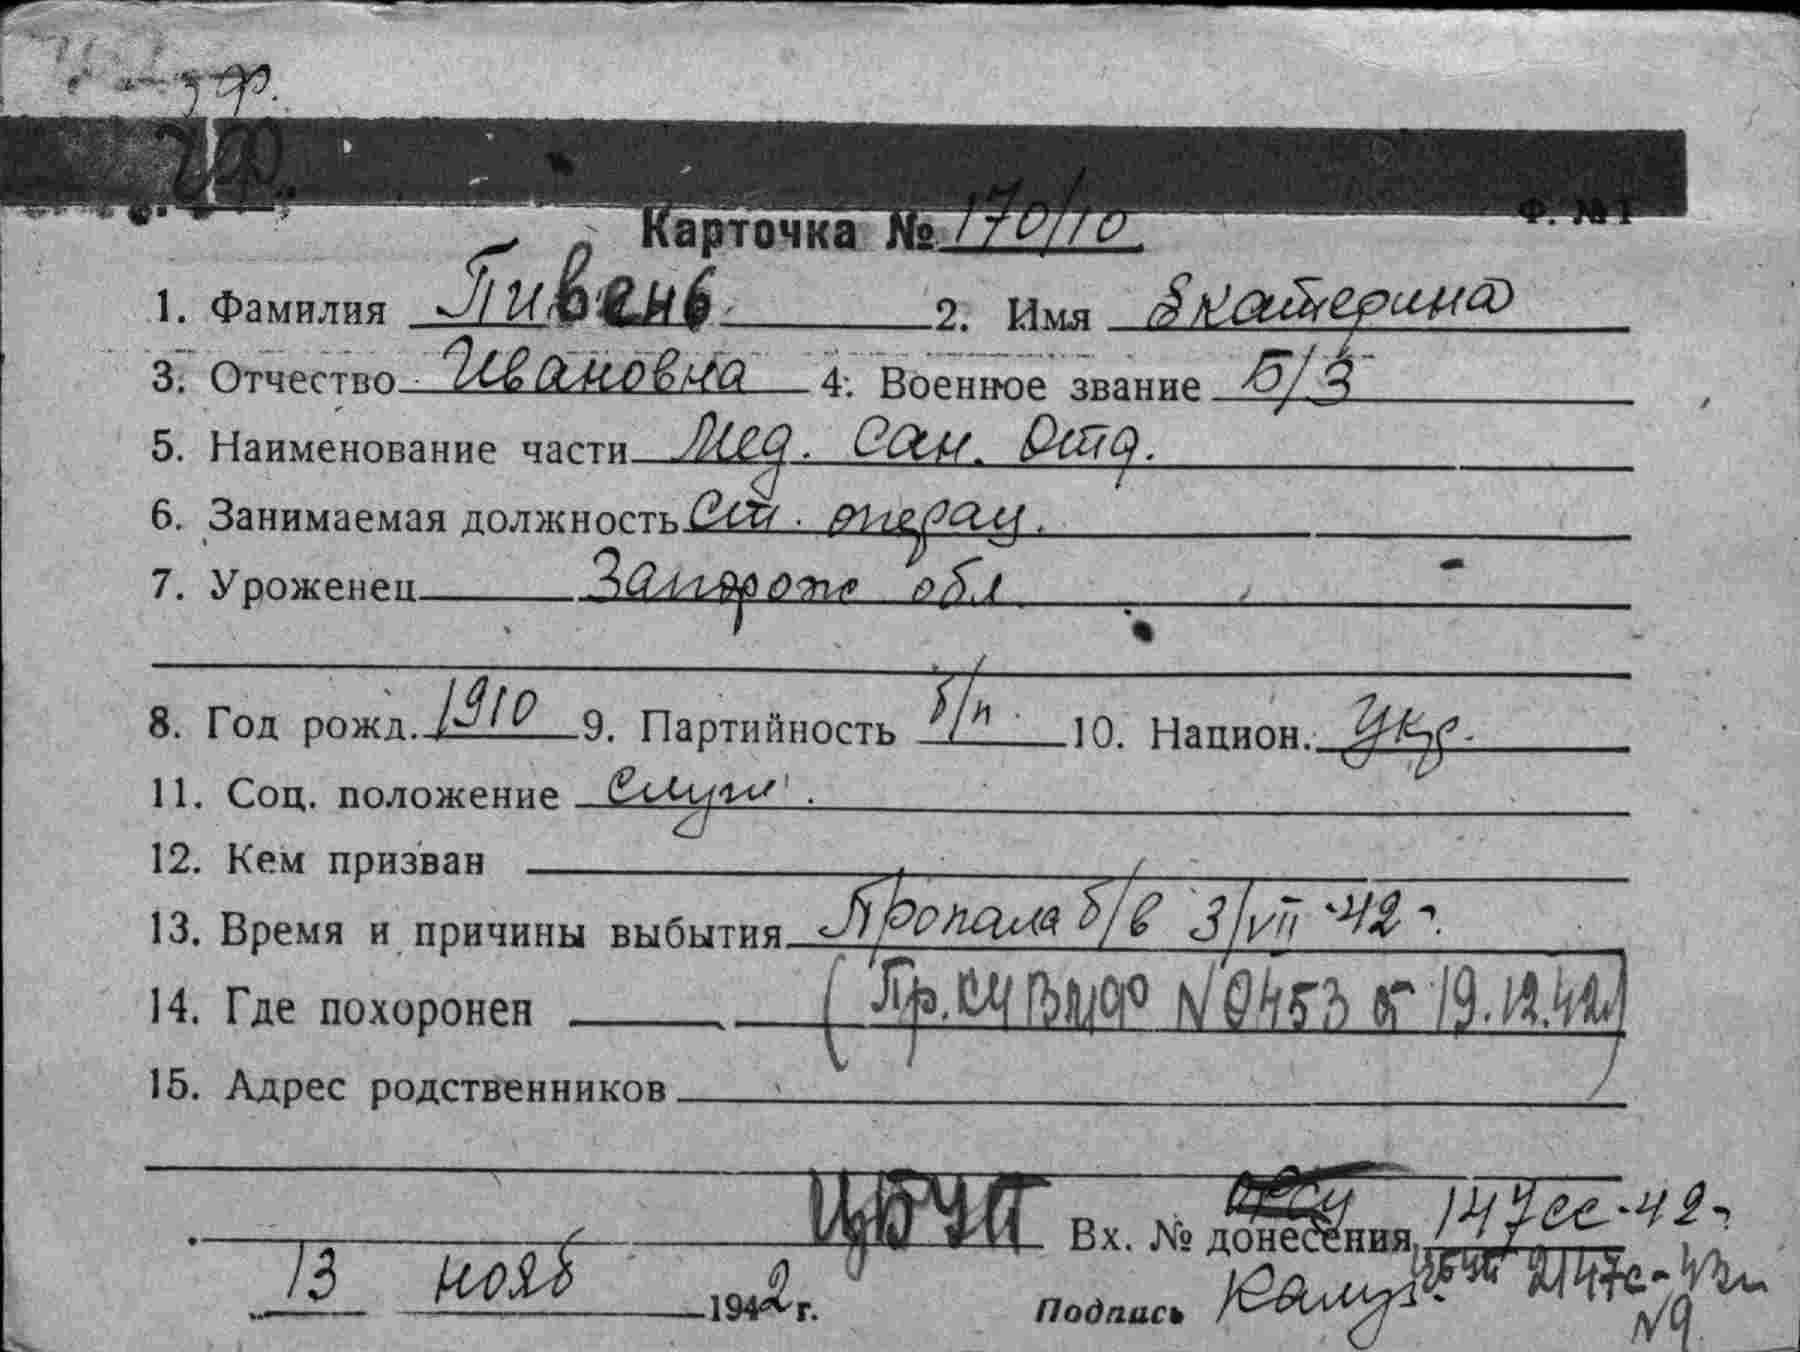 чф.
Ф. № 1
Карточка № 170/10
1. Фамилия Пивень 2. Имя Екатерина
3. Отчество Ивановна 4. Военное звание Б/З
5. Наименование части Мед. Сан. Отд.
6. Занимаемая должность Ст. операц.
7. Уроженец Запорож обл
8. Год рожд. 1910 9. Партийность б/п 10. Национ. Укр.
11. Соц. положение служ.
12. Кем призван
13. Время и причины выбытия Пропала б/в 3/VII-42 г.
14. Где похоронен (Пр. КУ ВМФ № 0453 от 19.12.42г)
15. Адрес родственников
ЦБУП Вх. № донесения 147сс-42г
13 нояб 1942 г. Подпись 2147с-43г
№9